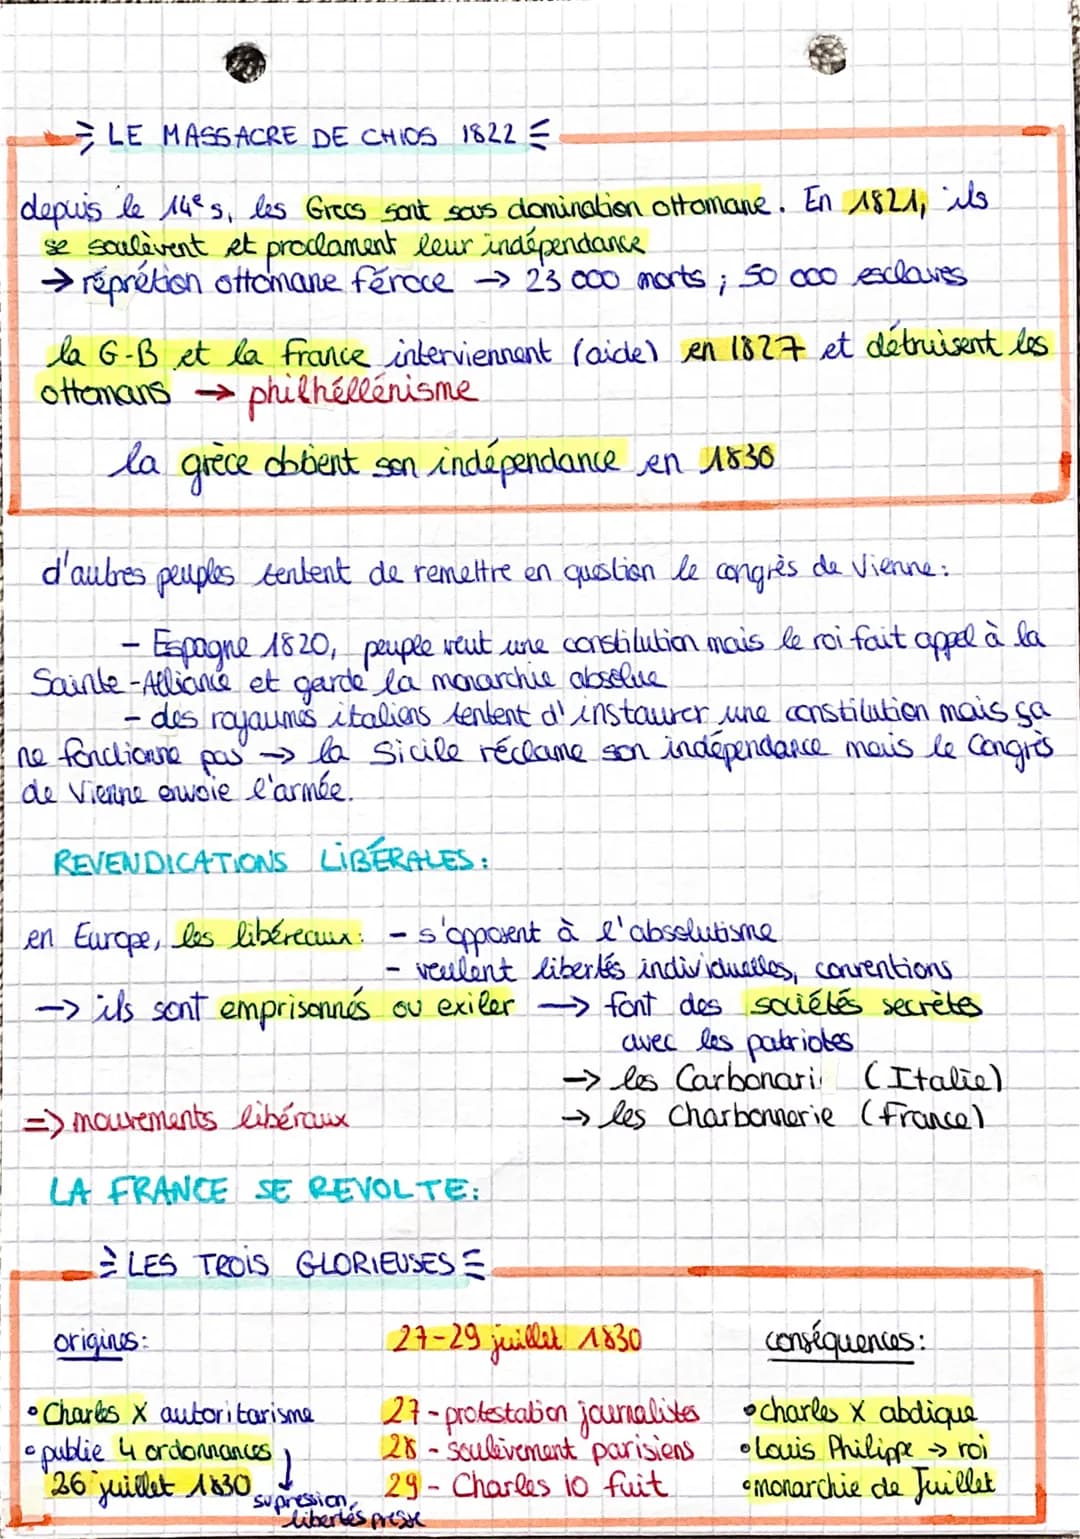 LE MASSACRE DE CHIOS 1822
depuis le 14e s, les Grecs sont sous domination ottomane. En 1821, ils
se soulèvent et proclament leur indépendance
→ réprétion ottomane féroce → 23 000 morts ; 50 000 esclaves
la G-B et la France interviennent (aide) en 1827 et détruisent les
ottomans → philhéllénisme
la grèce obtient son indépendance en 1830
d'autres peuples tentent de remettre en question le congrès de Vienne :
- Espagne 1820, peuple veut une constitution mais le roi fait appel à la
Sainte-Alliance et garde la monarchie absolue
- des royaumes italiens tentent d'instaurer une constitution mais ça
ne fonctionne pas → la Sicile réclame son indépendance mais le Congrès
de Vienne envoie l'armée.
REVENDICATIONS LIBÉRALES :
en Europe, les libéreaux : - s'opposent à l'absolutisme
- veulent libertés individuelles, conventions
→ ils sont emprisonnés ou exiler → font des sociétés secrètes
avec les patriotes
→ les Carbonari (Italie)
=> mouvements libéraux → les Charbonnerie (France)
LA FRANCE SE REVOLTE :
LES TROIS GLORIEUSES
origines : 27-29 juillet 1830 conséquences :
• Charles X autoritarisme 27 - protestation journalistes • charles X abdique
• publie 4 ordonnances 28 - soulèvement parisiens • Louis Philippe → roi
26 juillet 1830 ↓ 29 - Charles 10 fuit • monarchie de Juillet
supression,
libertés presse